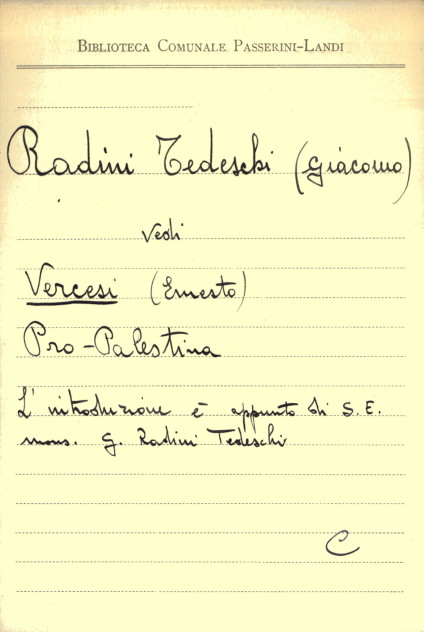 BIBLIOTECA COMUNALE PASSERINI-LANDI
Radini Tedeschi (Giàcomo)
Vedi
Vercesi (Ernesto)
Pro-Palestina
L'introduzione è appunto di S. E.
mons. G. Radini Tedeschi
C